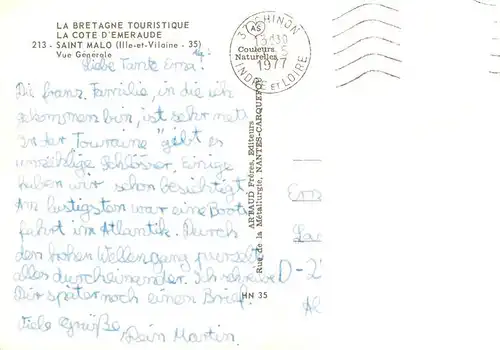 LA BRETAGNE TOURISTIQUE
LA COTE D'EMERAUDE
213 - SAINT MALO (Ille-et-Vilaine - 35)
Vue Générale
Liebe Tante Erna!
Die franz. Familie, in die ich
gekommen bin, ist sehr nett.
In der "Touraine" gibt es
unzählige Schlösser. Einige
haben wir schon besichtigt.
Am lustigsten war eine Boots
fahrt im Atlantik. Durch
den hohen Wellengang purzelt
alles durcheinander. Ich schreibe
Dir später noch einen Brief.
Viele Grüße
Dein Martin
37 CHINON
1977
INDRE ET LOIRE
AS
Couleurs
Naturelles
ARTAUD Frères, Editeurs
Rue de la Métallurgie, NANTES-CARQUEFOU
HN 35
D-2